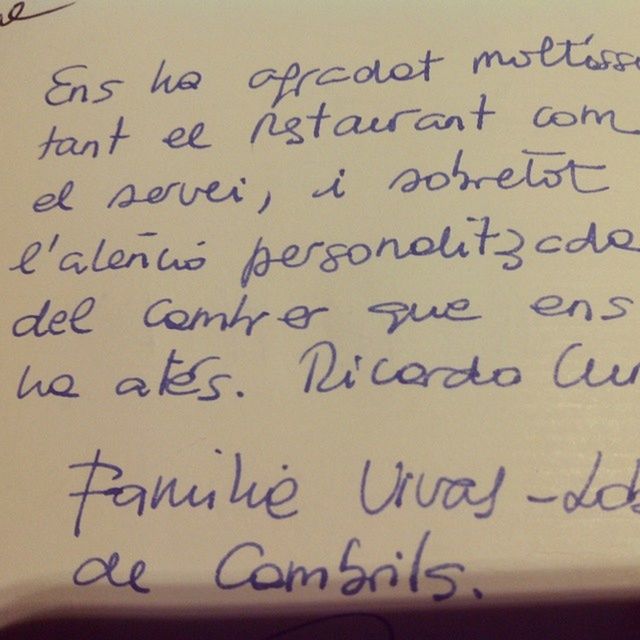 Ens ha agradat moltíss
tant el restaurant com
el servei, i sobretot
l'atenció personalitzada
del cambrer que ens
ha atés. Ricardo Cu
Família Vivas - Lo
de Cambrils.